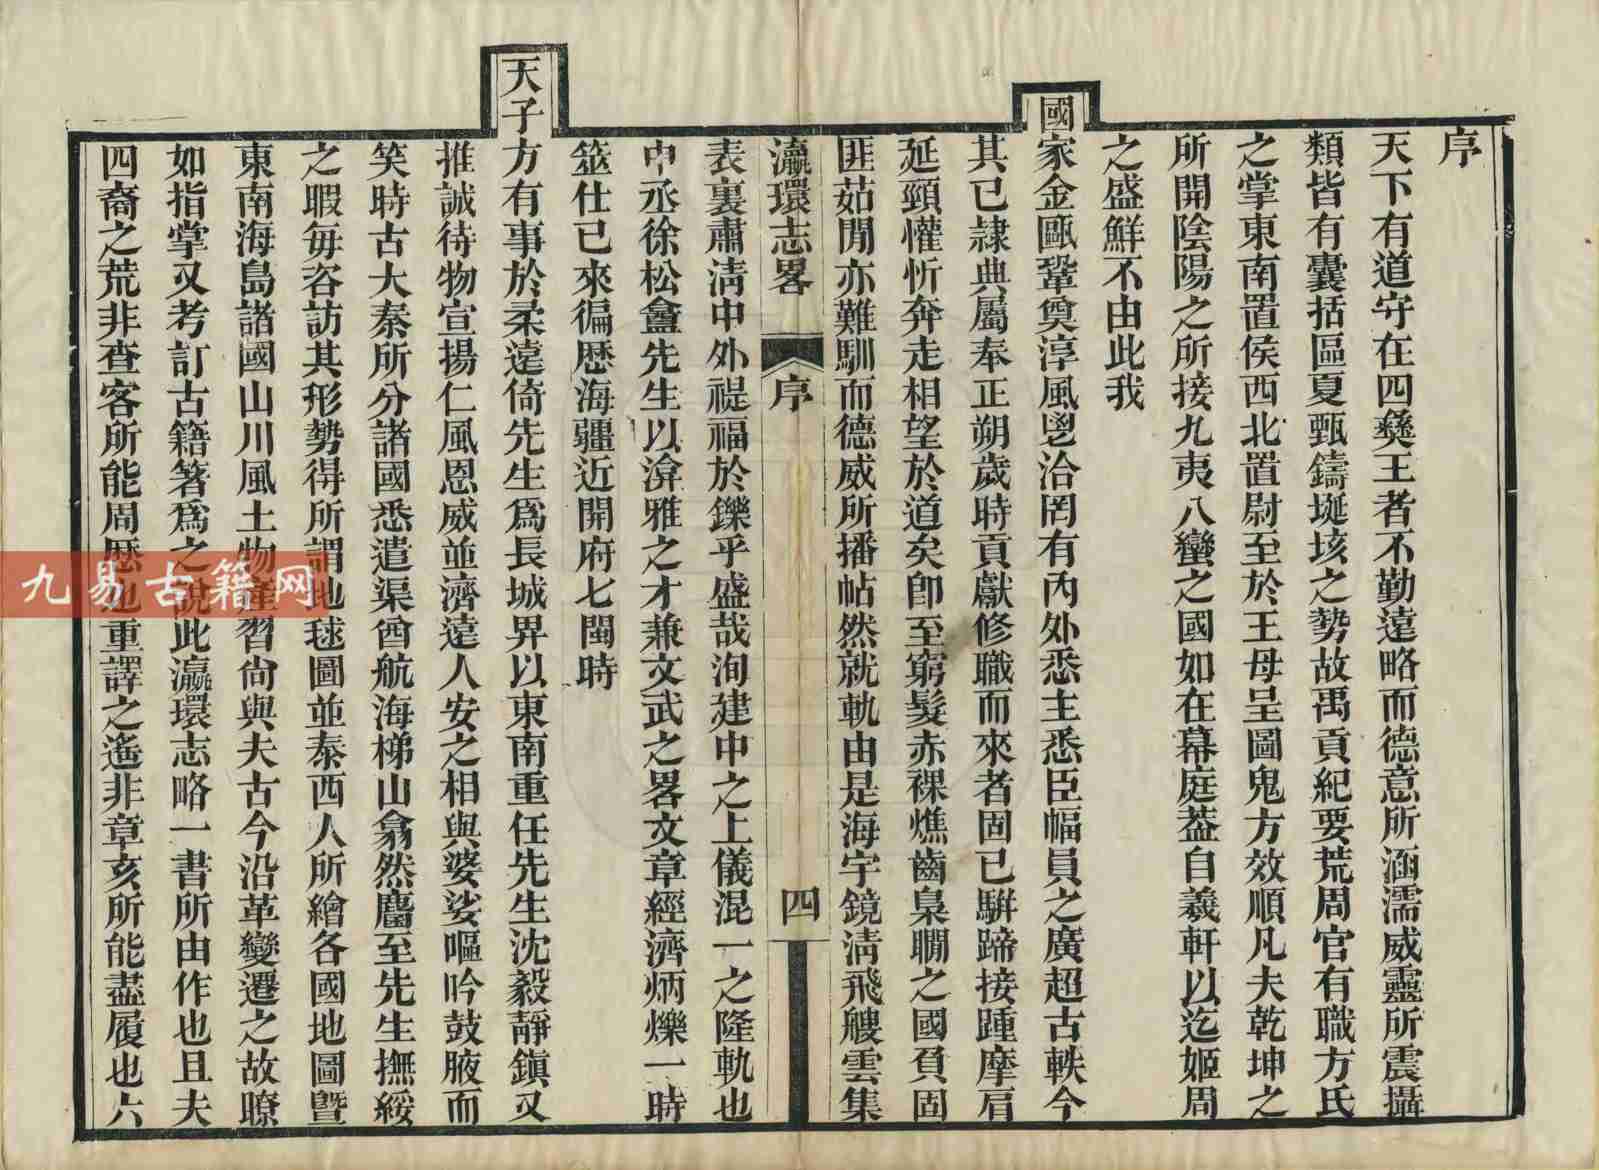 序
天下有道守在四彝王者不勤遠略而德意所涵濡威靈所震攝
類皆有囊括區夏甄鑄埏垓之勢故禹貢紀要荒周官有職方氏
之掌東南置侯西北置尉至於王母呈圖鬼方效順凡夫乾坤之
所開陰陽之所接九夷八蠻之國如在幕庭葢自羲軒以迄姬周
之盛鮮不由此我
國家金甌鞏奠淳風鬯洽罔有內外悉主悉臣幅員之廣超古軼今
其已隷典屬奉正朔歲時貢獻修職而來者固已駢蹄接踵摩肩
延頸懽忻奔走相望於道矣卽至窮髮赤裸燋齒梟瞯之國負固
匪茹閒亦難馴而德威所播帖然就軌由是海宇鏡淸飛艘雲集
瀛環志畧 序 四
表裏肅淸中外禔福於鑠乎盛哉洵建中之上儀混一之隆軌也
中丞徐松龕先生以渰雅之才兼文武之畧文章經濟炳爍一時
筮仕已來徧歷海疆近開府七閩時
天子方有事於柔遠倚先生爲長城畀以東南重任先生沈毅靜鎭又
推誠待物宣揚仁風恩威並濟遠人安之相與婆娑嘔吟鼓腋而
笑時古大秦所分諸國悉遣渠酋航海梯山翕然麕至先生撫綏
之暇每咨訪其形勢得所謂地毬圖並泰西人所繪各國地圖曁
東南海島諸國山川風土物產習尙與夫古今沿革變遷之故瞭
如指掌又考訂古籍箸爲之說此瀛環志略一書所由作也且夫
四裔之荒非查客所能周歷也重譯之遙非章亥所能盡履也六
九易古籍网